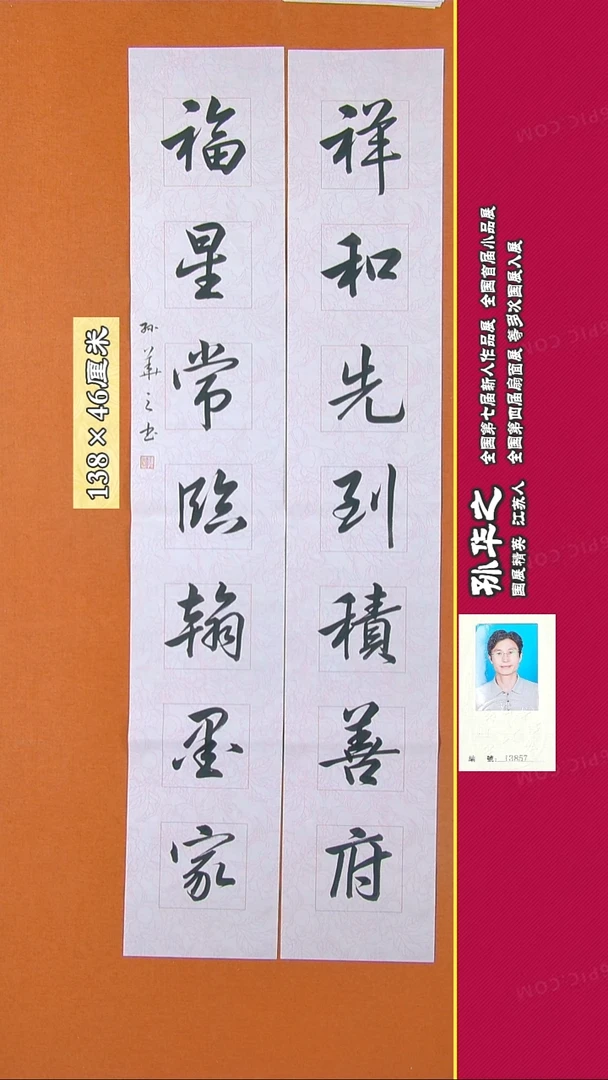 祥和先到積善府
福星常臨翰墨家
孙華之书
138×46厘米
孙华之
国展精英 江苏人
全国第七届新人作品展 全国首届小品展
全国第四届扇面展 等多次国展入展
編 號: 13857